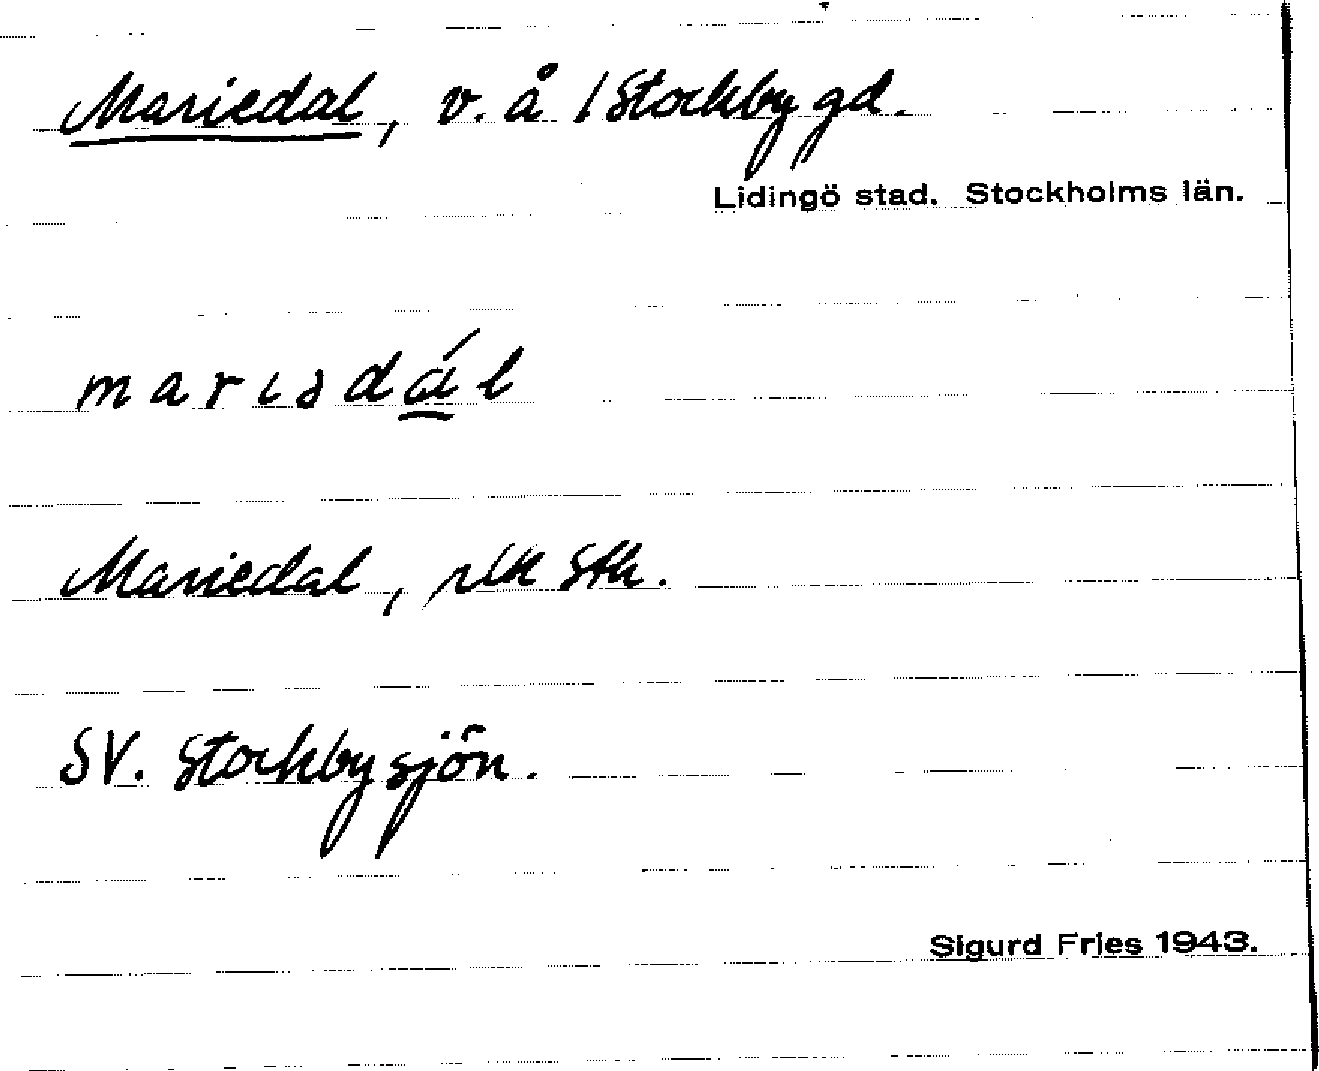 Mariedal, v. å 1 Stockby gd.
Lidingö stad. Stockholms län.
marıədál
Mariedal, rlk Sth.
SV. Stockbysjön.
Sigurd Fries 1943.